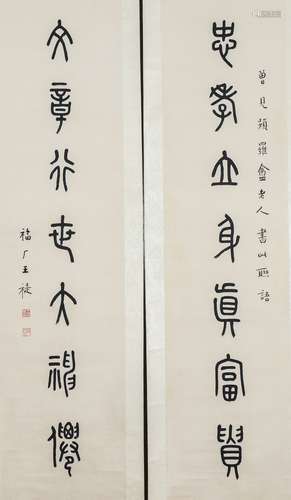 曾見頻羅盦老人書此聯語
忠孝立身眞富貴
文章行世大神僊
福厂王禔